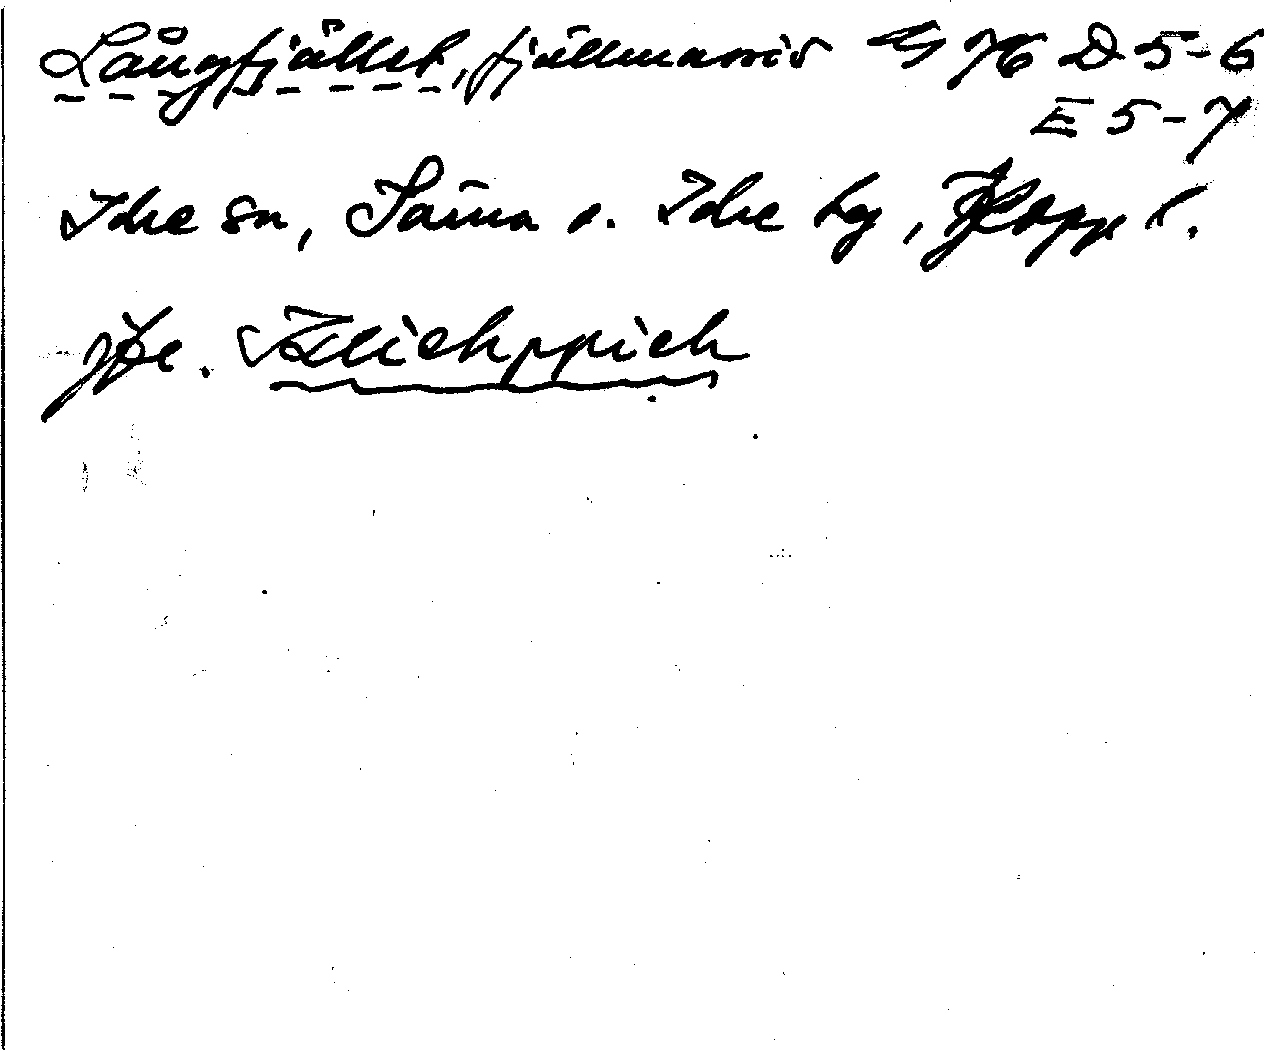 Långfjället, fjällmassiv G 76 D 5-6
E 5-7
Idre sn, Särna o. Idre tg, Kopp l.
jfr.